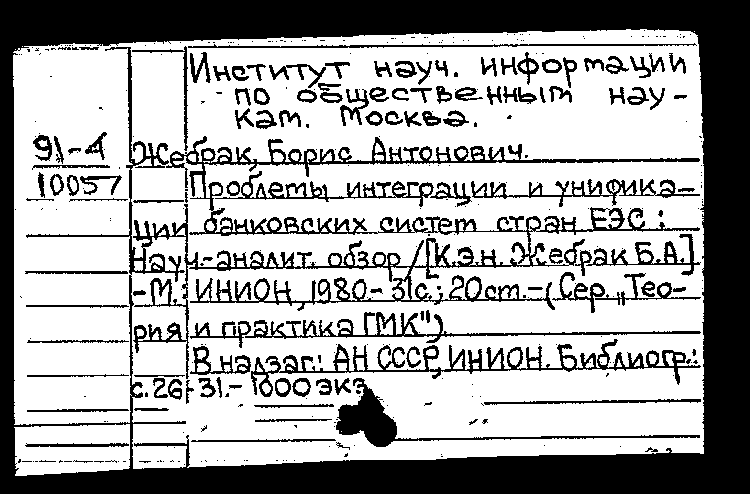 Институт науч. информации
по общественным нау-
кам. Москва.
91-4
10057
Жебрак, Борис Антонович.
Проблемы интеграции и унифика-
ции банковских систем стран ЕЭС:
Науч-аналит. обзор /[К.э.н. Жебрак Б.А.]
-М.: ИНИОН, 1980.- 31с.; 20см.-(Сер. „Тео-
рия и практика ГМК")
В надзаг.: АН СССР, ИНИОН. Библиогр.:
с. 26-31.- 1000 экз